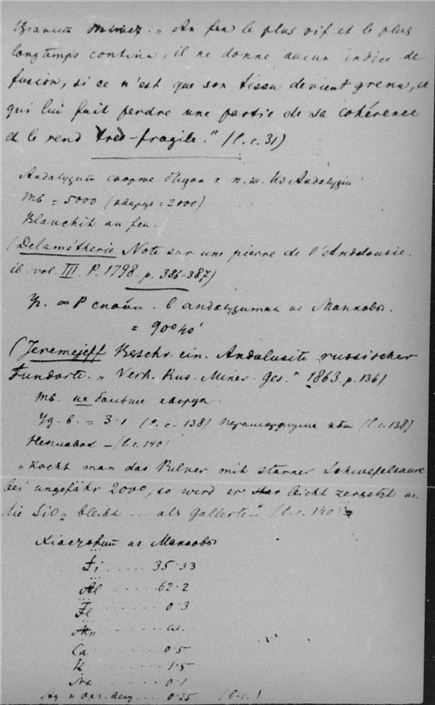 "Au feu le plus vif et le plus
longtemps continu, il ne donne aucun indice de
fusion, si ce n'est que son tissu devient grenu, ce
qui lui fait perdre une partie de sa cohérence
et le rend très-fragile." (l.c. 31)
Андалузит
Тв = 5000 (кварца = 2000)
Blanchit au feu.
(Delamétherie Note sur une pierre de l'Andalousie.
ib. vol. III. P. 1798. p. 386-387)
Уг. ∞P спайн. в андалузитах из Манковой
= 90°40'
(Jeremejeff Beschr. ein. Andalusite russischer
Fundorte. "Verh. Rus. Miner. Ges." 1863. p. 136)
Тв. не больше кварца
Уд. в. = 3.1 (l.c. 138) (l.c. 138)
Неплавок – (l.c. 140)
"Kocht man das Pulver mit starker Schwefelsäure
bei ungefähr 2000, so wird er leicht zersetzt u.
die SiO2 bleibt ... als Gallerte" (l.c. 140)
Хиастолит из Манковой
Si ..... 35.33
Al ..... 62.2
Fe ..... 0.3
Mn .....
Ca ..... 0.5
K ..... 1.5
Na ..... 0.1
..... 0.25 (l.c.)